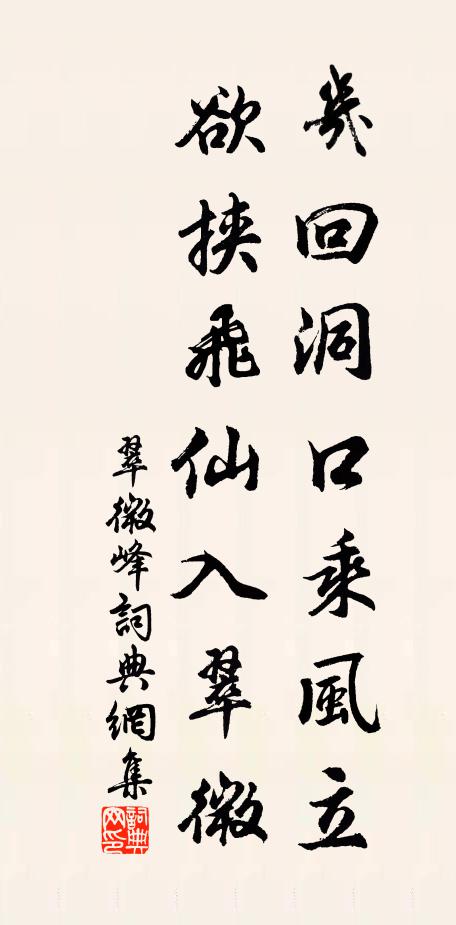 幾回洞口乘風立
欲挾飛仙入翠微
翠微峰詞典網集
詞典
网印